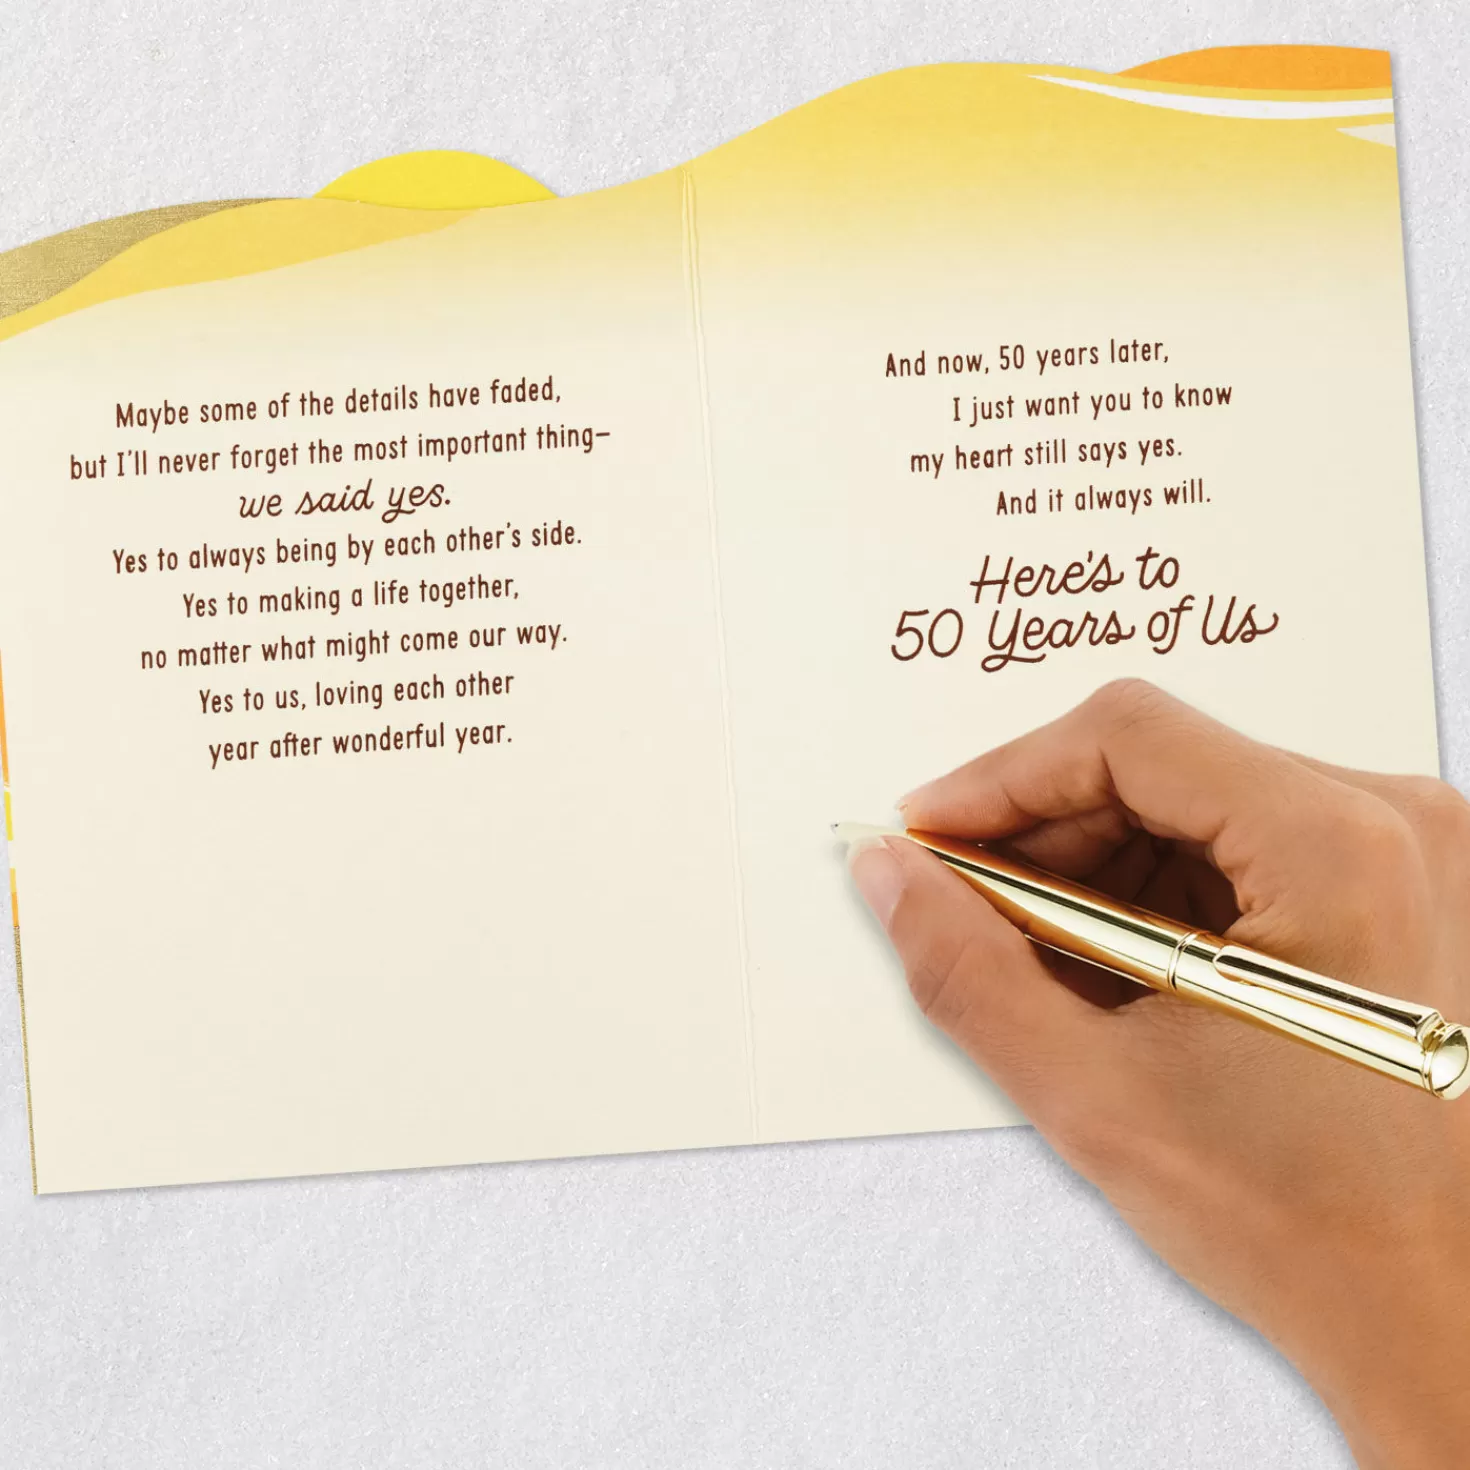 Maybe some of the details have faded,
but I'll never forget the most important thing—
we said yes.
Yes to always being by each other's side.
Yes to making a life together,
no matter what might come our way.
Yes to us, loving each other
year after wonderful year.
And now, 50 years later,
I just want you to know
my heart still says yes.
And it always will.
Here's to
50 Years of Us